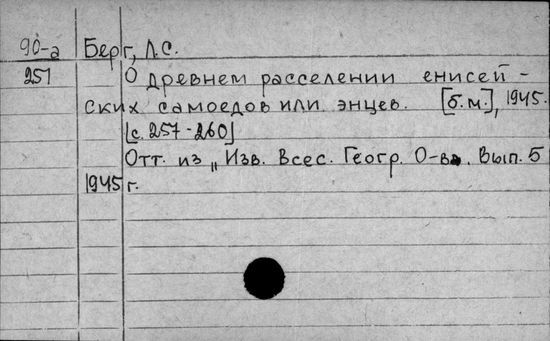 90-а Берг, Л.С.
251 О древнем расселении енисей-
ских самоедов или энцев. [б.м.], 1945.
[с. 257-260]
Отт. из „Изв. Всес. Геогр. О-ва. Вып. 5
1945 г.